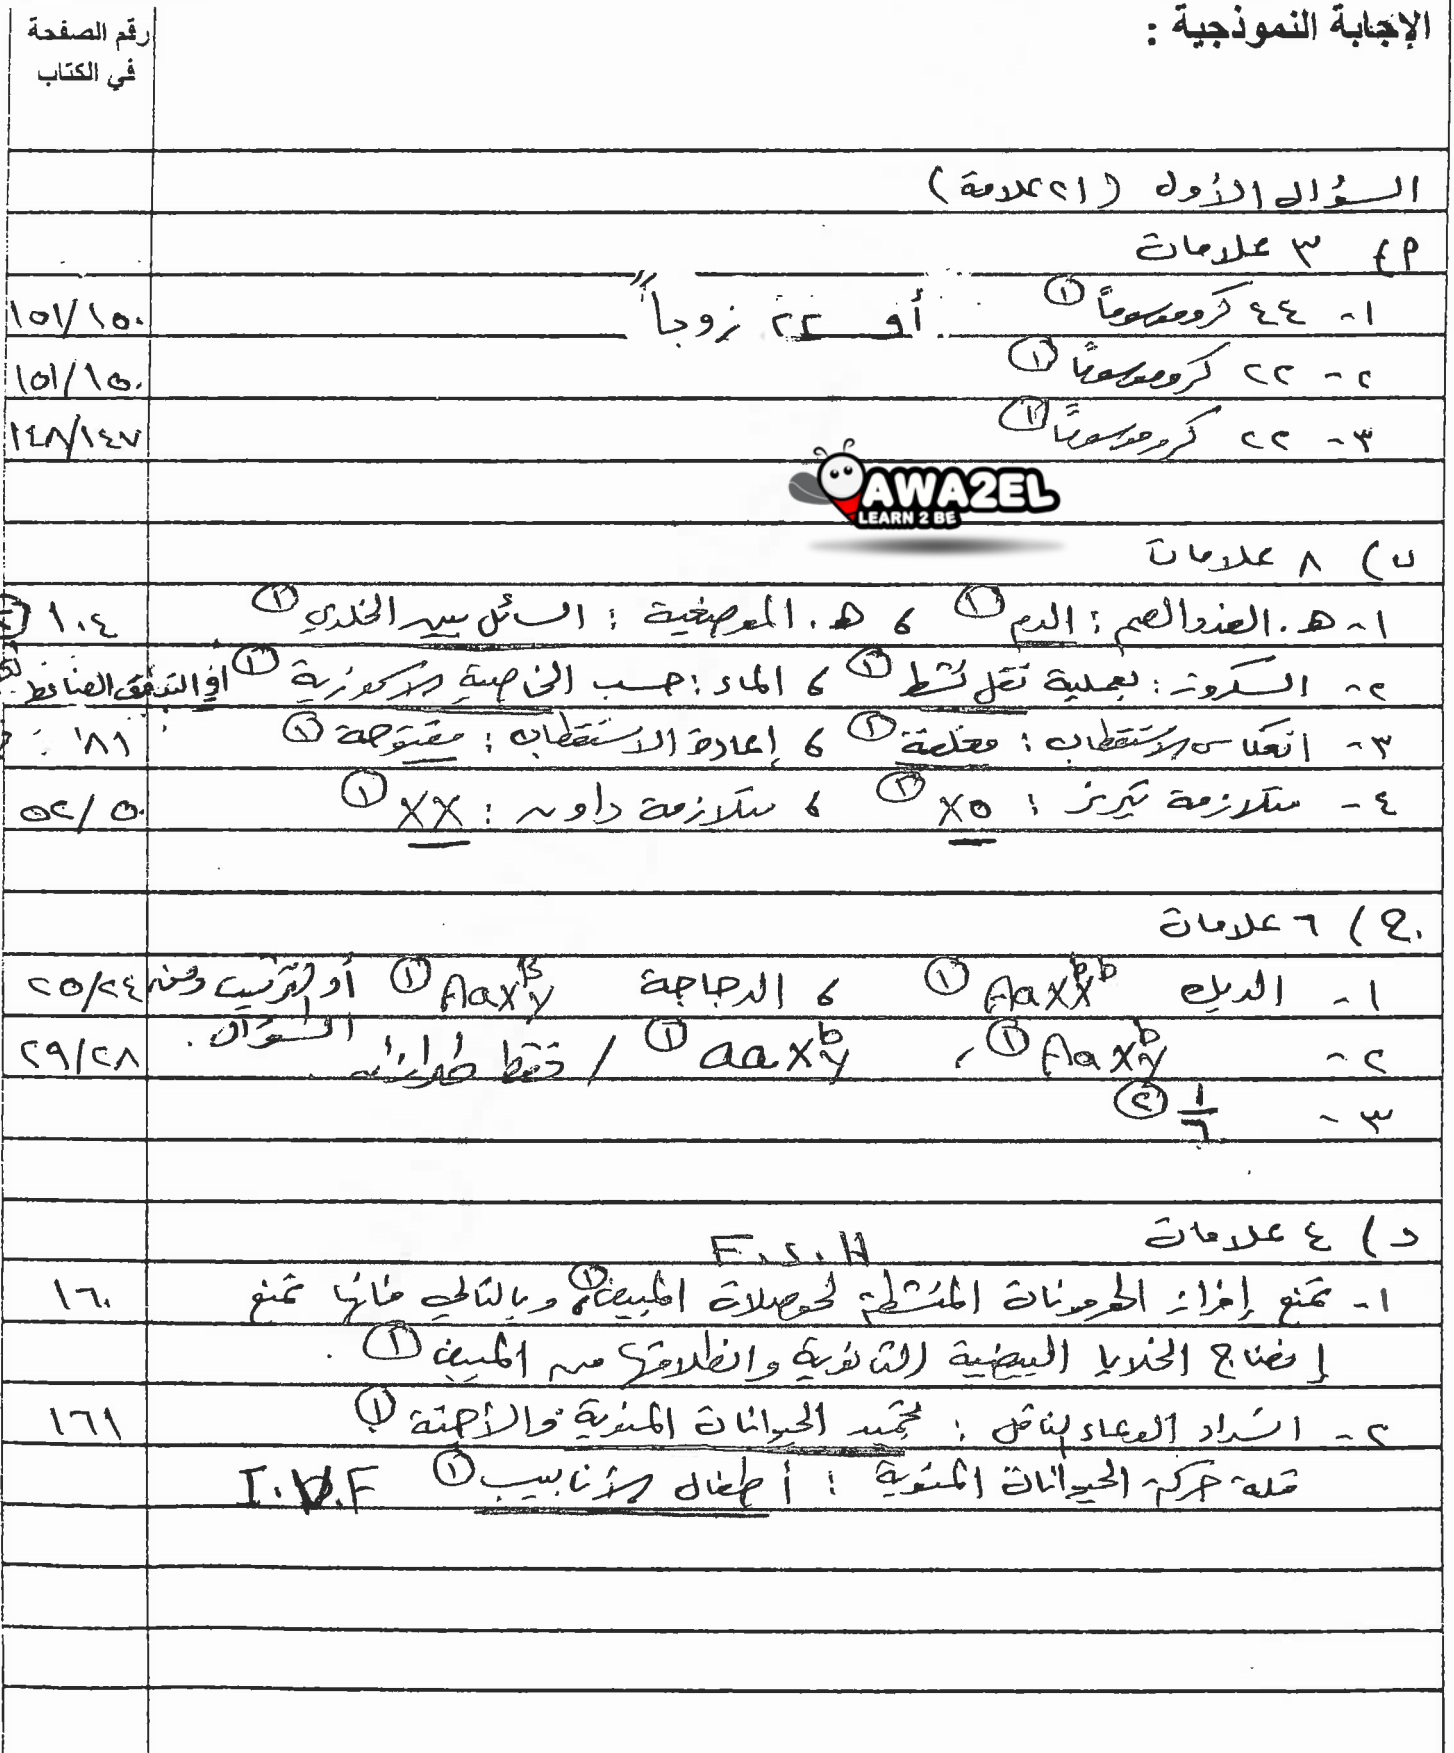 الإجابة النموذجية :
رقم الصفحة
في الكتاب
السؤال الأول (٢١ علامة)
أ) ٣ علامات
١- ٤٤ كروموسوماً ① أو ٢٢ زوجاً ١٥١/١٥٠
٢- ٢٢ كروموسومًا ① ١٥١/١٥٠
٣- ٢٢ كروموسومًا ① ١٤٨/١٤٧
AWA2EL
LEARN 2 BE
ب) ٨ علامات
١- هـ. الغدد الصم : الدم ① ، هـ. الموضعية : السائل بين الخلوي ① ١٠٤
٢- السكروز : بعملية نقل نشط ① ، الماء : حسب الخاصية الأسموزية ① أو التدفق الضاغط
٣- انعكاس الاستقطاب : مغلقة ① ، إعادة الاستقطاب : مفتوحة ① ٨١
٤- متلازمة تيرنر : XO ① ، متلازمة داون : XX ① ٥٢/٥٠
ج) ٦ علامات
١- الديك AaXᵇXᵇ ① ، الدجاجة AaXᴮY ① أو لترتيب وحسب السؤال . ٢٥/٢٤
٢- AaXᵇY ① ، aaXᵇY ① / فقط طرازان . ٢٩/٢٨
٣- ١/٦ ②
د) ٤ علامات
F.S.H
١- تمنع إفراز الهرمونات المنشطة لحوصلات المبيض ① ، وبالتالي فإنها تمنع ١٦٠
إنضاج الخلايا البيضية الثانوية وانطلاقها من المبيض ① .
٢- انسداد الوعاء الناقل : تجميد الحيوانات المنوية والأجنة ① ١٦١
قلة حركة الحيوانات المنوية : أطفال الأنابيب ① I.V.F